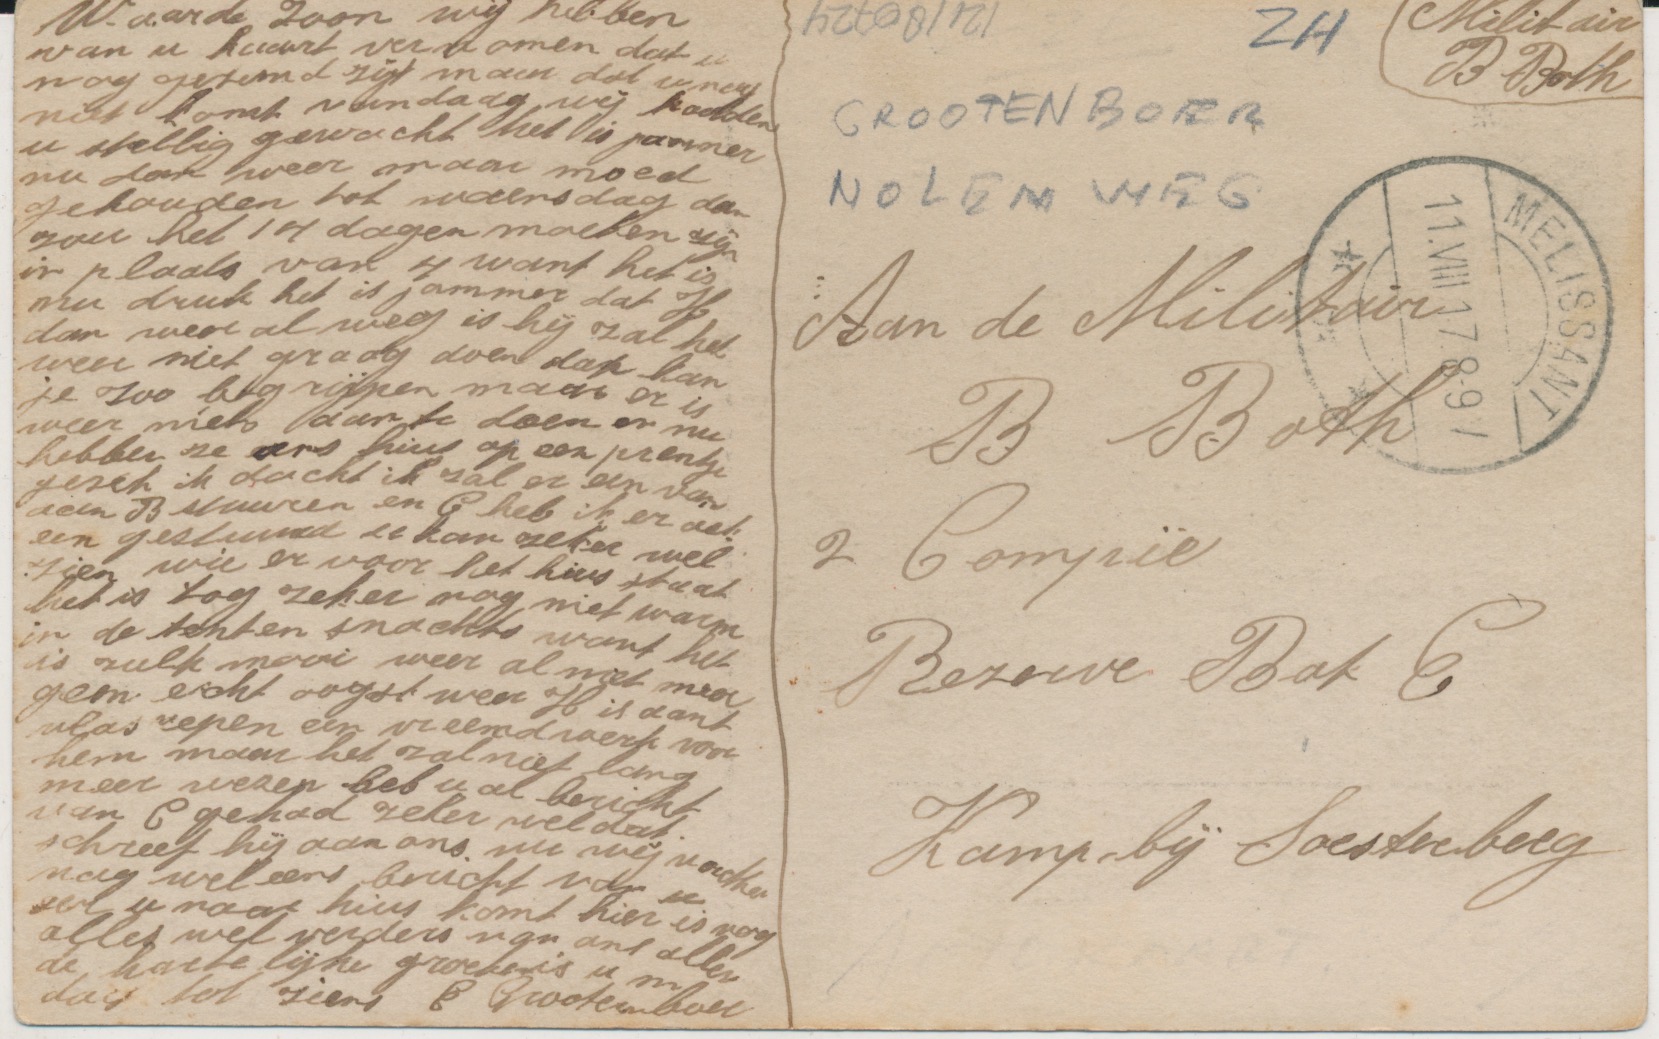 Waarde Zoon wij hebben
van u kaart vernomen dat u
nog gezond zijt maar dat u nog
niet komt vandaag wij hadden
u stellig gewacht het is jammer
nu dan weer maar moed
gehouden tot woensdag dan
zou het 14 dagen moeten zijn
in plaats van 4 want het is
nu druk het is jammer dat H
dan weer al weg is hij zal het
weer niet graag doen dat kan
je zoo begrijpen maar er is
weer niets aan te doen en nu
hebben ze ons huis op een prentje
gezet ik dacht ik zal er een van
aan B stuuren en C heb ik er ook
een gestuurd u kan zeker wel
zien wie er voor het huis staat
het is tog zeker nog niet warm
in de tenten snachts want het
is zulk mooi weer al met meer
geen echt oogst weer H is aant
vlas repen een vreemd werk voor
hem maar het zal niet lang
meer wezen heb u al bericht
van C gehad zeker wel dat
schreef hij aan ons nu wij
nog wel eens bericht van u
eer u naar huis komt hier is nog
alles wel verders van ons allen
de hartelijke groetenis u m
dag tot ziens C Grootenboer
12/180724
ZH
Militair
B Both
GROOTENBOER
NOLEN WEG
MELISSANT
11.VIII 17 8-9 V
Aan de Militair
B Both
2 Compië
Rezerve Bat C
Kamp bij Soesterberg